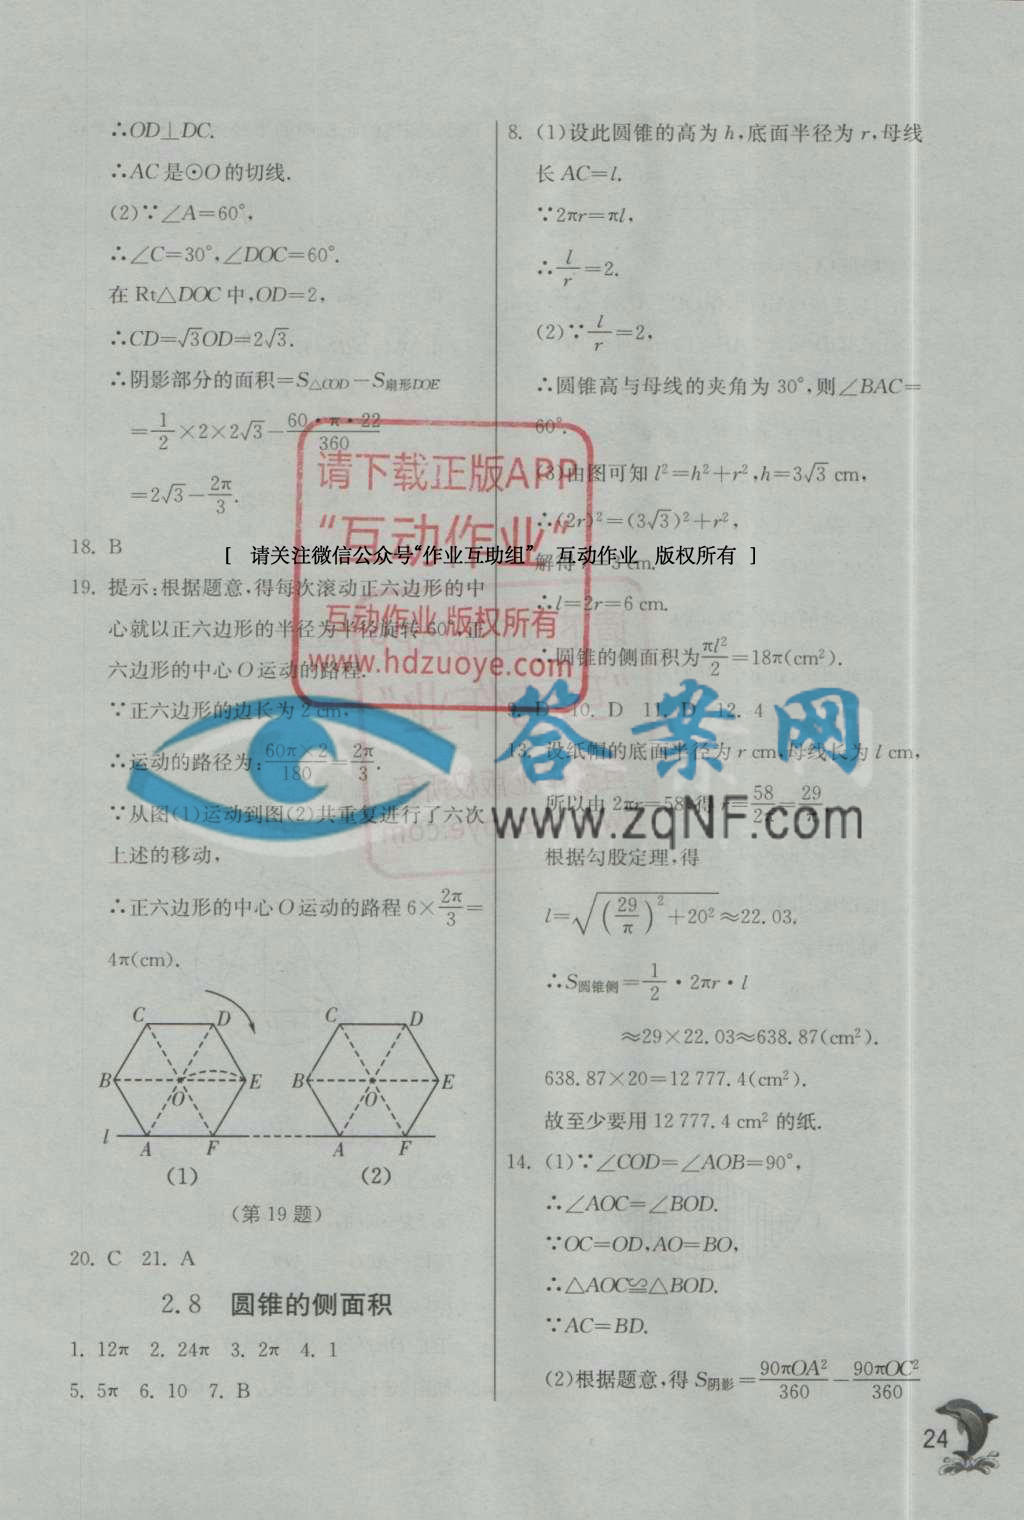 ∴OD⊥DC.
∴AC是⊙O的切线.
(2)∵∠A=60°,
∴∠C=30°,∠DOC=60°.
在Rt△DOC中,OD=2,
∴CD=√3OD=2√3.
∴阴影部分的面积=S△COD-S扇形DOE
=1/2×2×2√3-60·π·22/360
=2√3-2π/3.
18. B
19. 提示:根据题意,得每次滚动正六边形的中
心就以正六边形的半径为半径旋转60°,正
六边形的中心O运动的路程.
∵正六边形的边长为2 cm,
∴运动的路径为:60π×2/180=2π/3.
∵从图(1)运动到图(2)共重复进行了六次
上述的移动,
∴正六边形的中心O运动的路程6×2π/3=
4π(cm).
C D C D
B E B E
O O
l A F A F
(1) (2)
(第19题)
20. C 21. A
2.8 圆锥的侧面积
1. 12π 2. 24π 3. 2π 4. 1
5. 5π 6. 10 7. B
8. (1)设此圆锥的高为h,底面半径为r,母线
长AC=l.
∵2πr=πl,
∴l/r=2.
(2)∵l/r=2,
∴圆锥高与母线的夹角为30°,则∠BAC=
60°.
(3)由图可知l²=h²+r²,h=3√3 cm,
∴(2r)²=(3√3)²+r²,
解得r=3 cm.
∴l=2r=6 cm.
∴圆锥的侧面积为πl²/2=18π(cm²).
9. D 10. D 11. D 12. 4
13. 设纸帽的底面半径为r cm,母线长为l cm,
所以由2πr=58,得r=58/2π=29/π
根据勾股定理,得
l=√((29/π)²+20²)≈22.03.
∴S圆锥侧=1/2·2πr·l
≈29×22.03≈638.87(cm²).
638.87×20=12 777.4(cm²).
故至少要用12 777.4 cm²的纸.
14. (1)∵∠COD=∠AOB=90°,
∴∠AOC=∠BOD.
∵OC=OD,AO=BO,
∴△AOC≌△BOD.
∵AC=BD.
(2)根据题意,得S阴影=90πOA²/360-90πOC²/360
24
请下载正版APP
“互动作业”
互动作业 版权所有
www.hdzuoye.com
[ 请关注微信公众号“作业互助组” 互动作业 版权所有 ]
答案网
www.zqNF.com